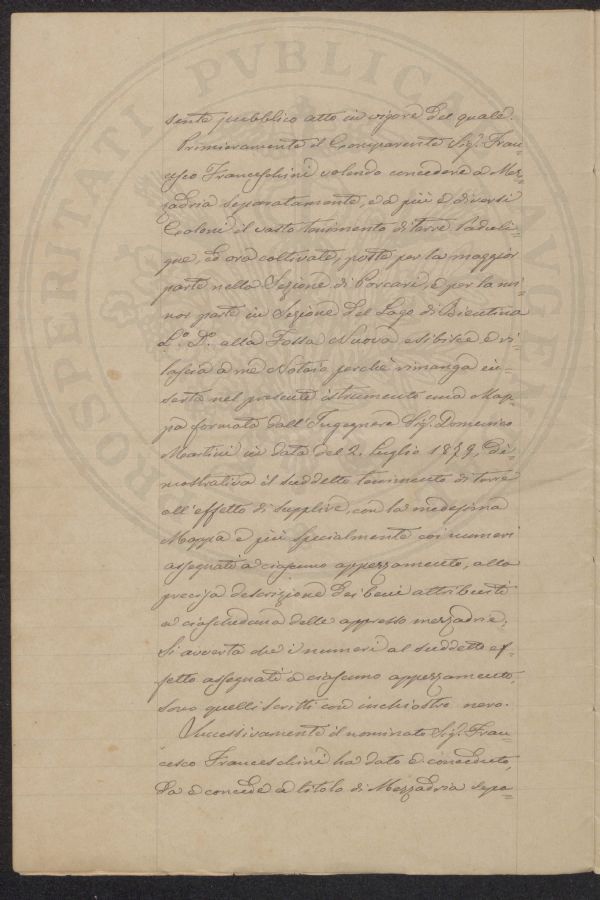 sente pubblico atto in vigore del quale.
Primieramente il Comparente Sig.r Fran=
cesco Franceschini volendo concedere a Mez=
zadria separatamente, e a più e diversi
Coloni il vasto tenimento di terre padueli=
gne, ed ora coltivate, poste per la maggior
parte nella Sezione di Porcari, e per la mi=
nor parte in Sezione del Lago di Bientina
L.o D.o alla Fossa Nuova esibisce e ri=
lascia a me Notaro perchè rimanga in=
serta nel presente istrumento una Map=
pa formata dall'Ingegnere Sig.r Domenico
Martini in data del 2. Luglio 1879, di=
mostrativa il suddetto tenimento di terre
all'effetto di supplire, con la medesima
Mappa e più specialmente coi numeri
assegnati a ciascuno appezzamento, alla
precisa descrizione dei beni attribuiti
a ciascheduna delle appresso mezzadrie,
Si avverte che i numeri al suddetto ef=
fetto assegnati a ciascuno appezzamento,
sono quelli scritti con inchiostro nero.
Successivamente il nominato Sig.r Fran=
cesco Franceschini ha dato e conceduto,
dà e concede a titolo di Mezzadria sepa=
PROSPERITATI PVBLICAE AVGENDAE